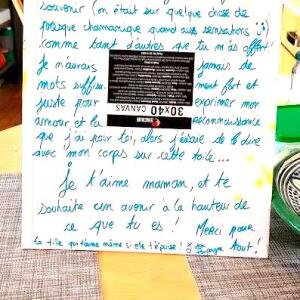 souvenir (on était sur quelque chose de
presque chamanique quand aux sensations)
comme tant d'autres que tu m'as offert
Je n'aurais jamais de
mots suffisamment fort et
juste pour exprimer mon
30x40 CANVAS
amour et la reconnaissance
que j'ai pour toi, alors j'essaie de le dire
avec mon corps sur cette toile...
Je t'aime maman, et te
souhaite un avenir à la hauteur de
ce que tu es! Merci pour
tout!
La fille qui t'aime même si elle t'épuise!